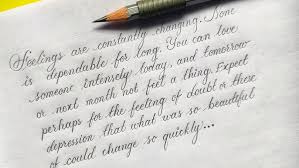 Feelings are constantly changing. None
is dependable for long. You can love
someone intensely today, and tomorrow
or next month not feel a thing. Expect
perhaps for the feeling of doubt or these
depression that what was so beautiful
could change so quickly...